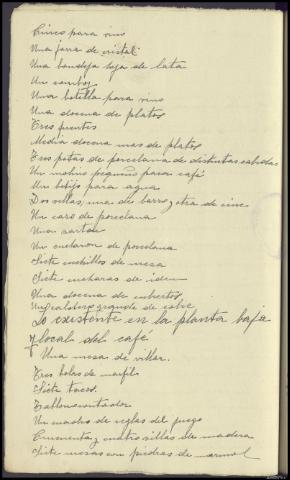 Cinco para vino
Una jarra de cristal
Una bandeja hoja de lata
Un
Una botella para vino
Una docena de platos
Tres fuentes
Media docena mas de platos
Tres potas de porcelana de distintas cabidas
Un molino pequeño para café
Un botijo para agua
Dos ollas, una de barro y otra de cinc
Un cazo de porcelana
Una sarten
Un cucharon de porcelana
Siete cuchillos de mesa
Siete cucharas de idem
Una docena de cubiertos
Un grande de
Lo existente en la planta baja
y local del café
Una mesa de villar.
Tres bolas de marfil
Siete tacos.
Tablon contador
Un cuadro de reglas del juego
Cincuenta y cuatro sillas de madera
Siete mesas con piedras de marmol